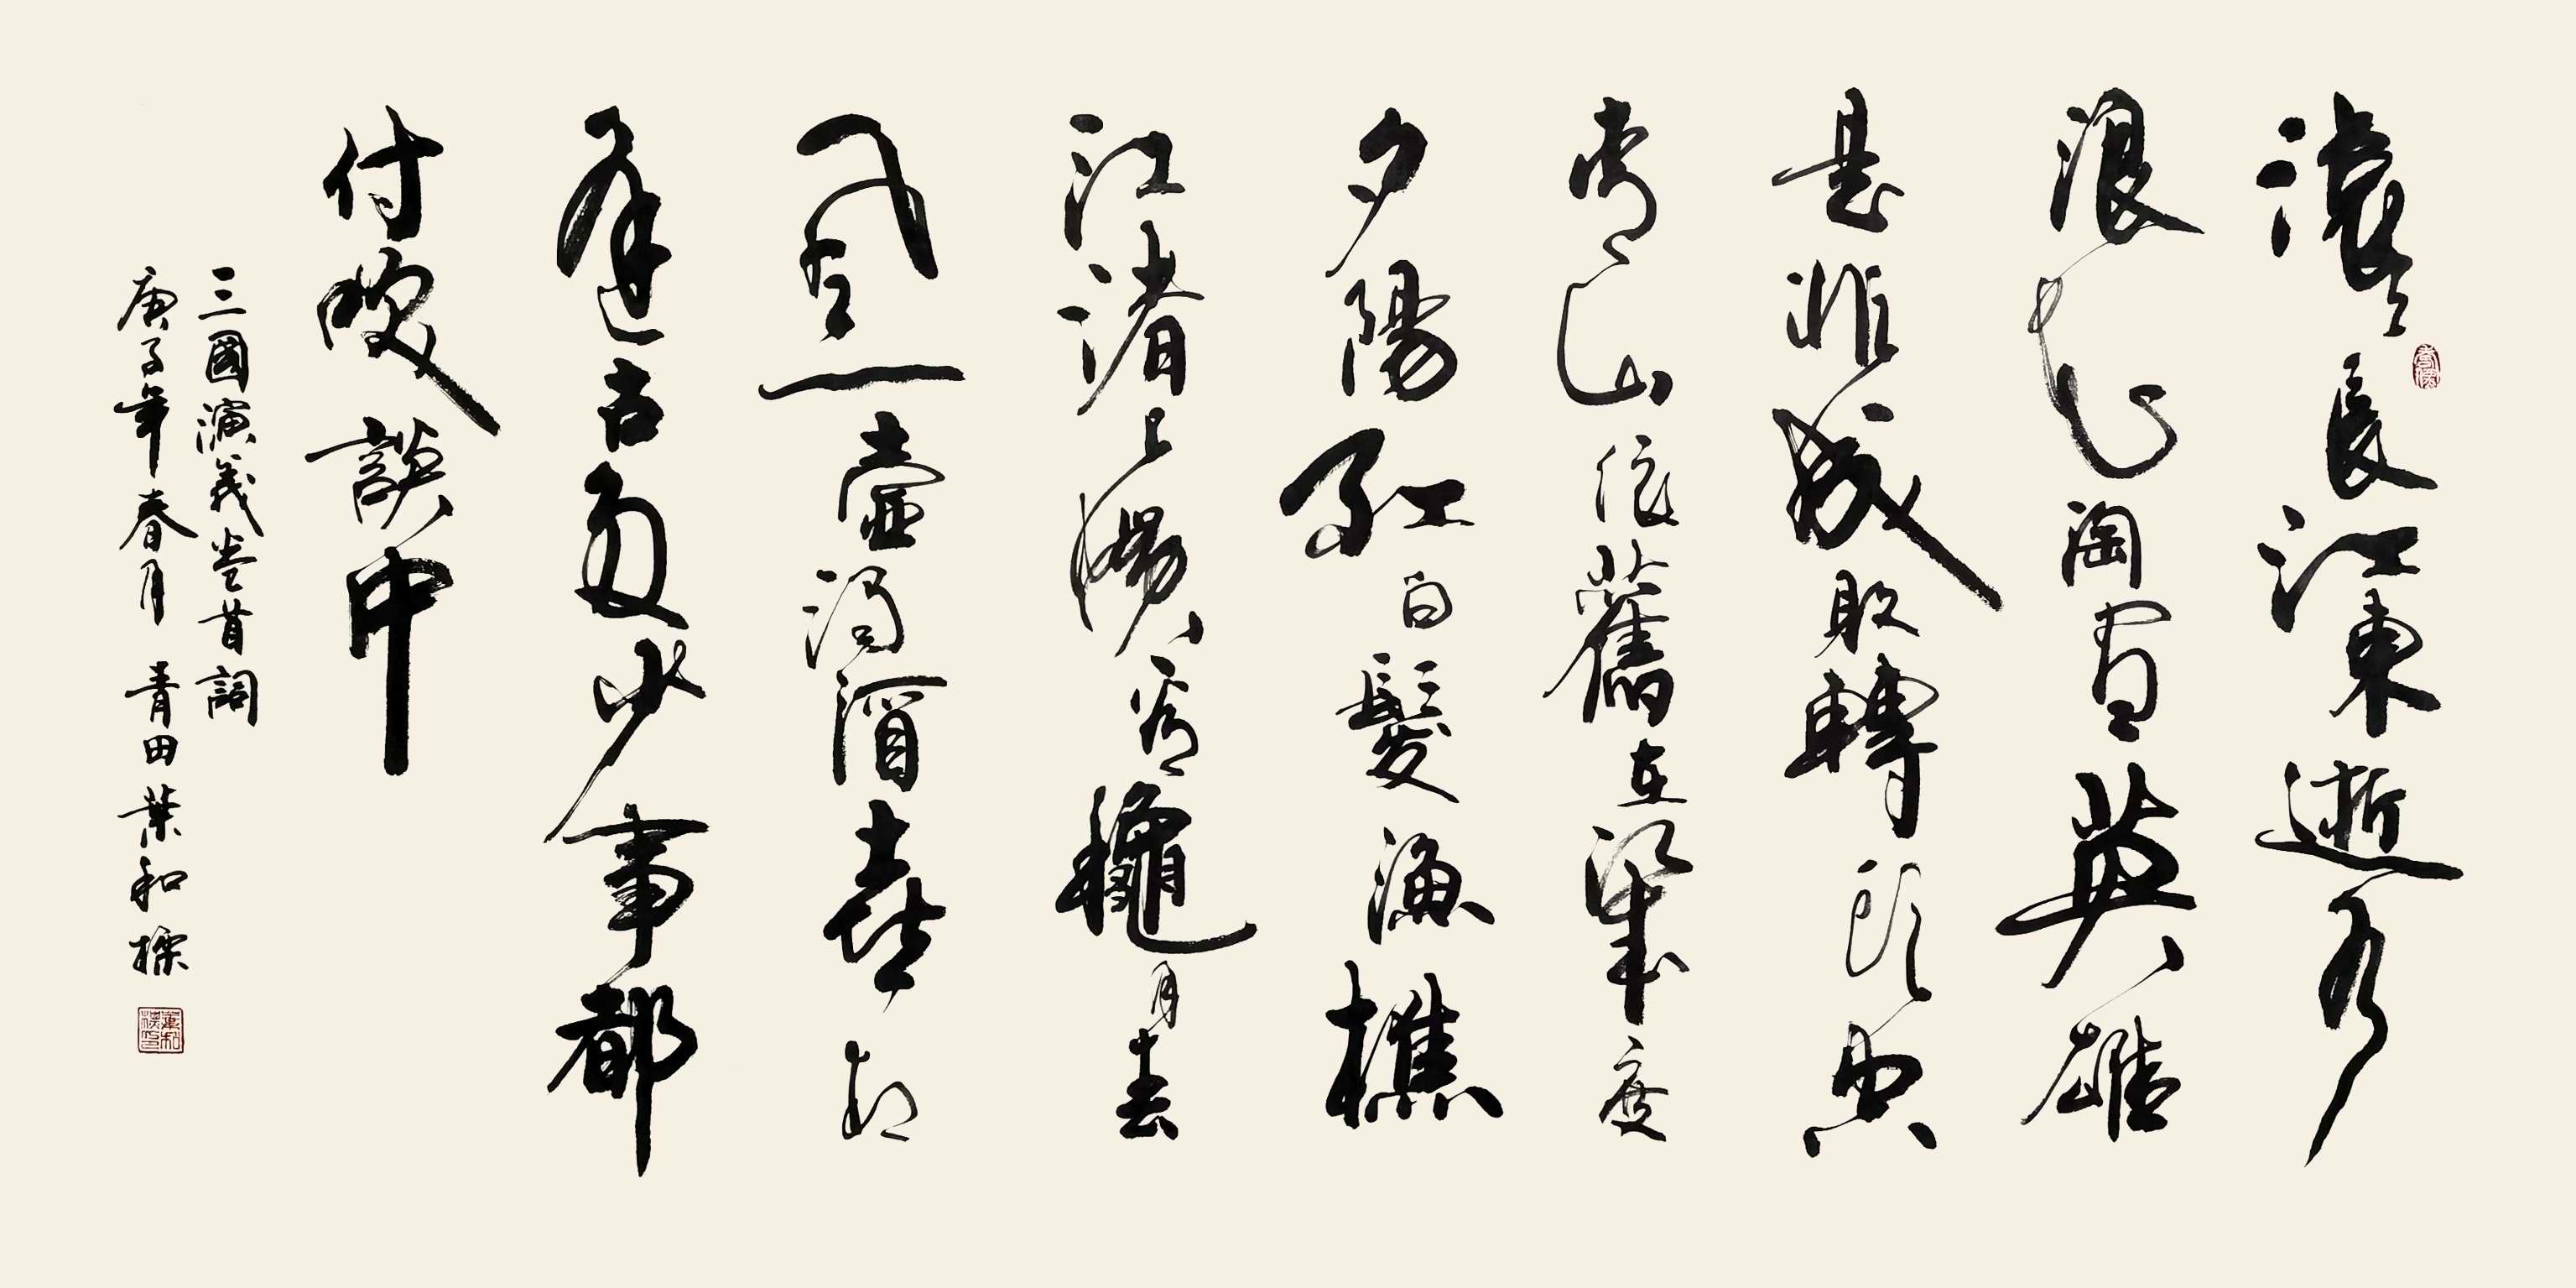 滚滚長江東逝水
浪花淘盡英雄
是非成敗轉頭空
青山依舊在幾度
夕陽紅白髮漁樵
江渚上慣看龝月春
風一壺濁酒喜相
逢古今多少事都
付咲談中
三國演義卷首詞
庚子年春月 青田葉和樸
葉和樸印